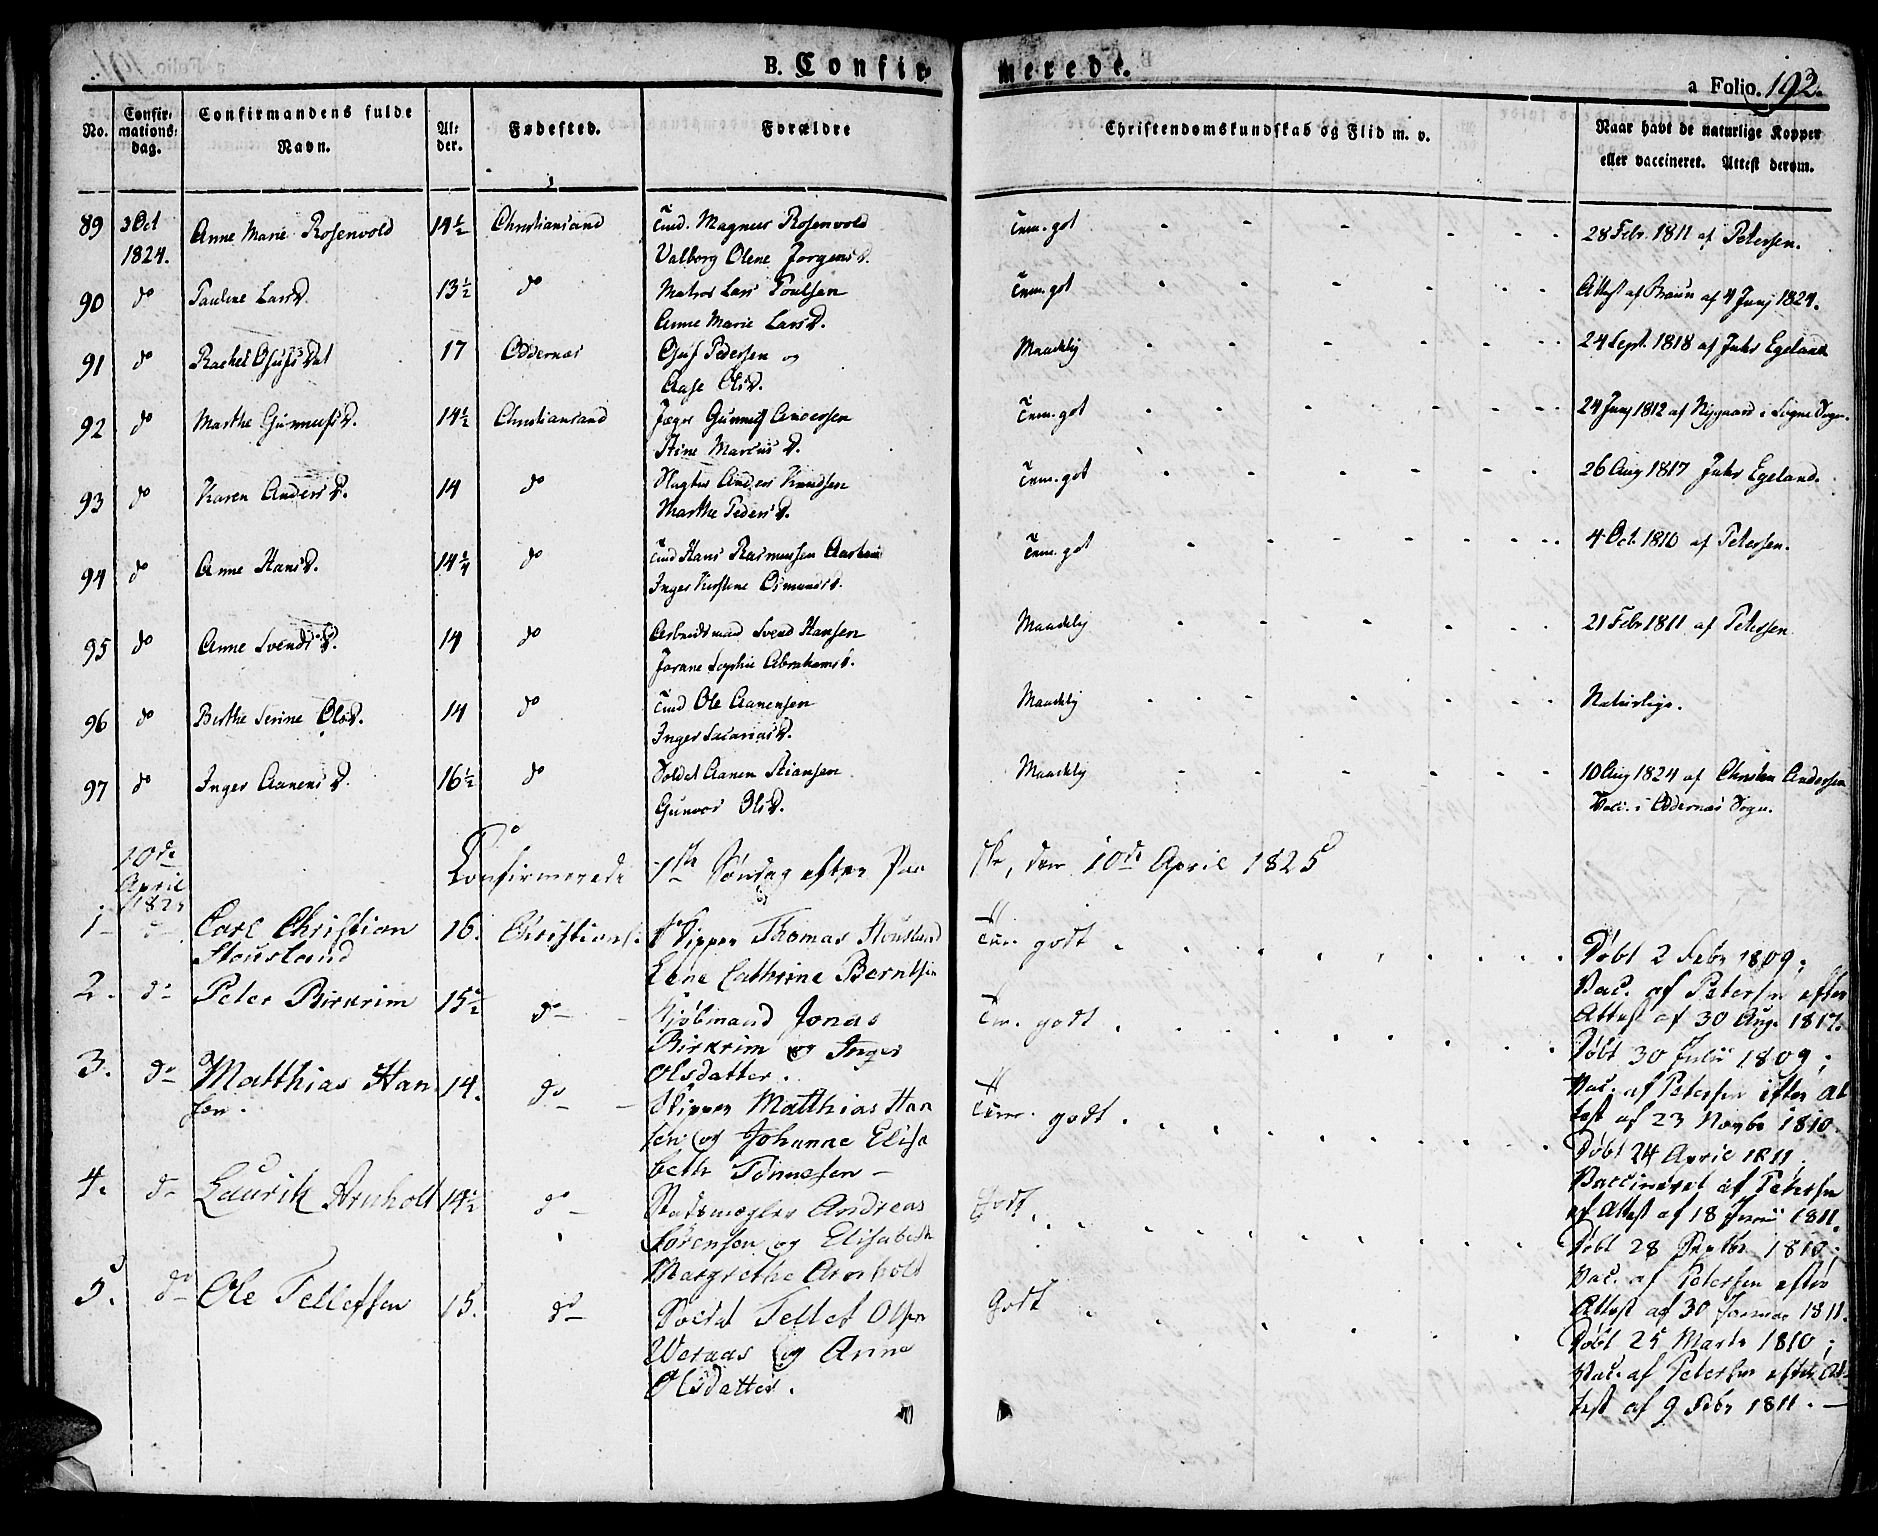 B. Confir- merede.
a Folio. 192.
No. Confir-mations-dag. Confirmandens fulde Navn. Al-der. Fødested. Forældre Christendomskundskab og Flid m. v. Naar havt de naturlige Kopper eller vaccineret. Attest derom.
89 3 Oct 1824. Anne Marie Rosenvold 14½ Christiansand Tmd. Magnus Rosenvold Tem. got 28 Febr. 1811 af Petersen.
Valborg Olene Jorgensd.
90 do Pauline Larsd. 13½ do Matros Lars Poulsen Tem. got Attest af Braun af 4 Junj 1824.
Anne Marie Larsd.
91 do Rachel Osufsdat 17 Oddernæs Osuf Pedersen og Maadelig 24 Sept. 1818 af Juhs Egeland
Aase Olsd.
92 do Marthe Gunnufsd. 14½ Christiansand Jæger Gunnuf Andersen Tem. got 24 Junj 1812 af Nygaard i Sogne Sogn.
Stine Marcusd.
93 do Karen Andersd. 14 do Slagter Anders Knudsen Tem. got 26 Aug 1817 Juhs Egeland.
Marthe Pedersd.
94 do Anne Hansd. 14¼ do Tmd Hans Rasmussen Tem. got 4 Oct. 1810 af Petersen.
Inger Kirstine Osmundsd.
95 do Anne Svendsd. 14 do Arbeidsmand Svend Hansen Maadelig 21 Febr 1811 af Petersen
Jorane Sophie Abrahamsd.
96 do Berthe Serine Olsd. 14 do Tmd Ole Aanensen Maadelig Naturlige.
Inger Sacariasd.
97 do Inger Aanensd. 16½ do Soldat Aanen Stiansen Maadelig 10 Aug 1824 af Christen Andersen
Gunvor Olsd. Vacc. i Oddernæs Sogn.
10de April 1825 Confirmerede 1ste Søndag efter Paaske, den 10de April 1825
1 do Carl Christian 16. Christians. Skipper Thomas Stousland Tem. godt Døbt 2 Febr 1809;
Stousland Lene Cathrine Berntsen Vac. af Petersen efter
2. do Peter Birkrim 15½ do Kjøbmand Jonas Tem. godt Attest af 30 Aug. 1817.
Birkrim og Inger Døbt 30 Julii 1809;
3. do Matthias Han 14. do Olsdatter. Vac. af Petersen efter At
sen. Skipper Matthias Han Tem. godt test af 23 Novbr 1810.
sen og Johanne Elisa Døbt 24 April 1811,
4. do Laurik Arnholt 14½ do beth Tønnesen Godt Vaccineret af Petersen
Stadsmægler Andreas af Attest af 18 Junii 1811.
Sørensen og Elisabeth Døbt 28 Septbr 1810;
Margrethe Arnholt Vac. af Petersen efter
5. do Ole Tellefsen 15. do Soldat Tellef Olsen Godt Attest af 30 Januar 1811.
Weraas og Anne Døbt 25 Marts 1810;
Olsdatter. Vac. af Petersen efter At
test af 9 Febr 1811.